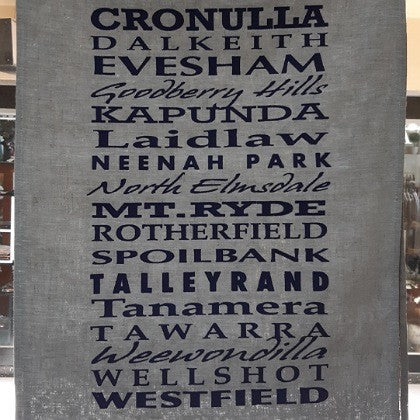 CRONULLA
DALKEITH
EVESHAM
Goodberry Hills
KAPUNDA
Laidlaw
NEENAH PARK
North Elmsdale
MT.RYDE
ROTHERFIELD
SPOILBANK
TALLEYRAND
Tanamera
TAWARRA
Weewondilla
WELLSHOT
WESTFIELD